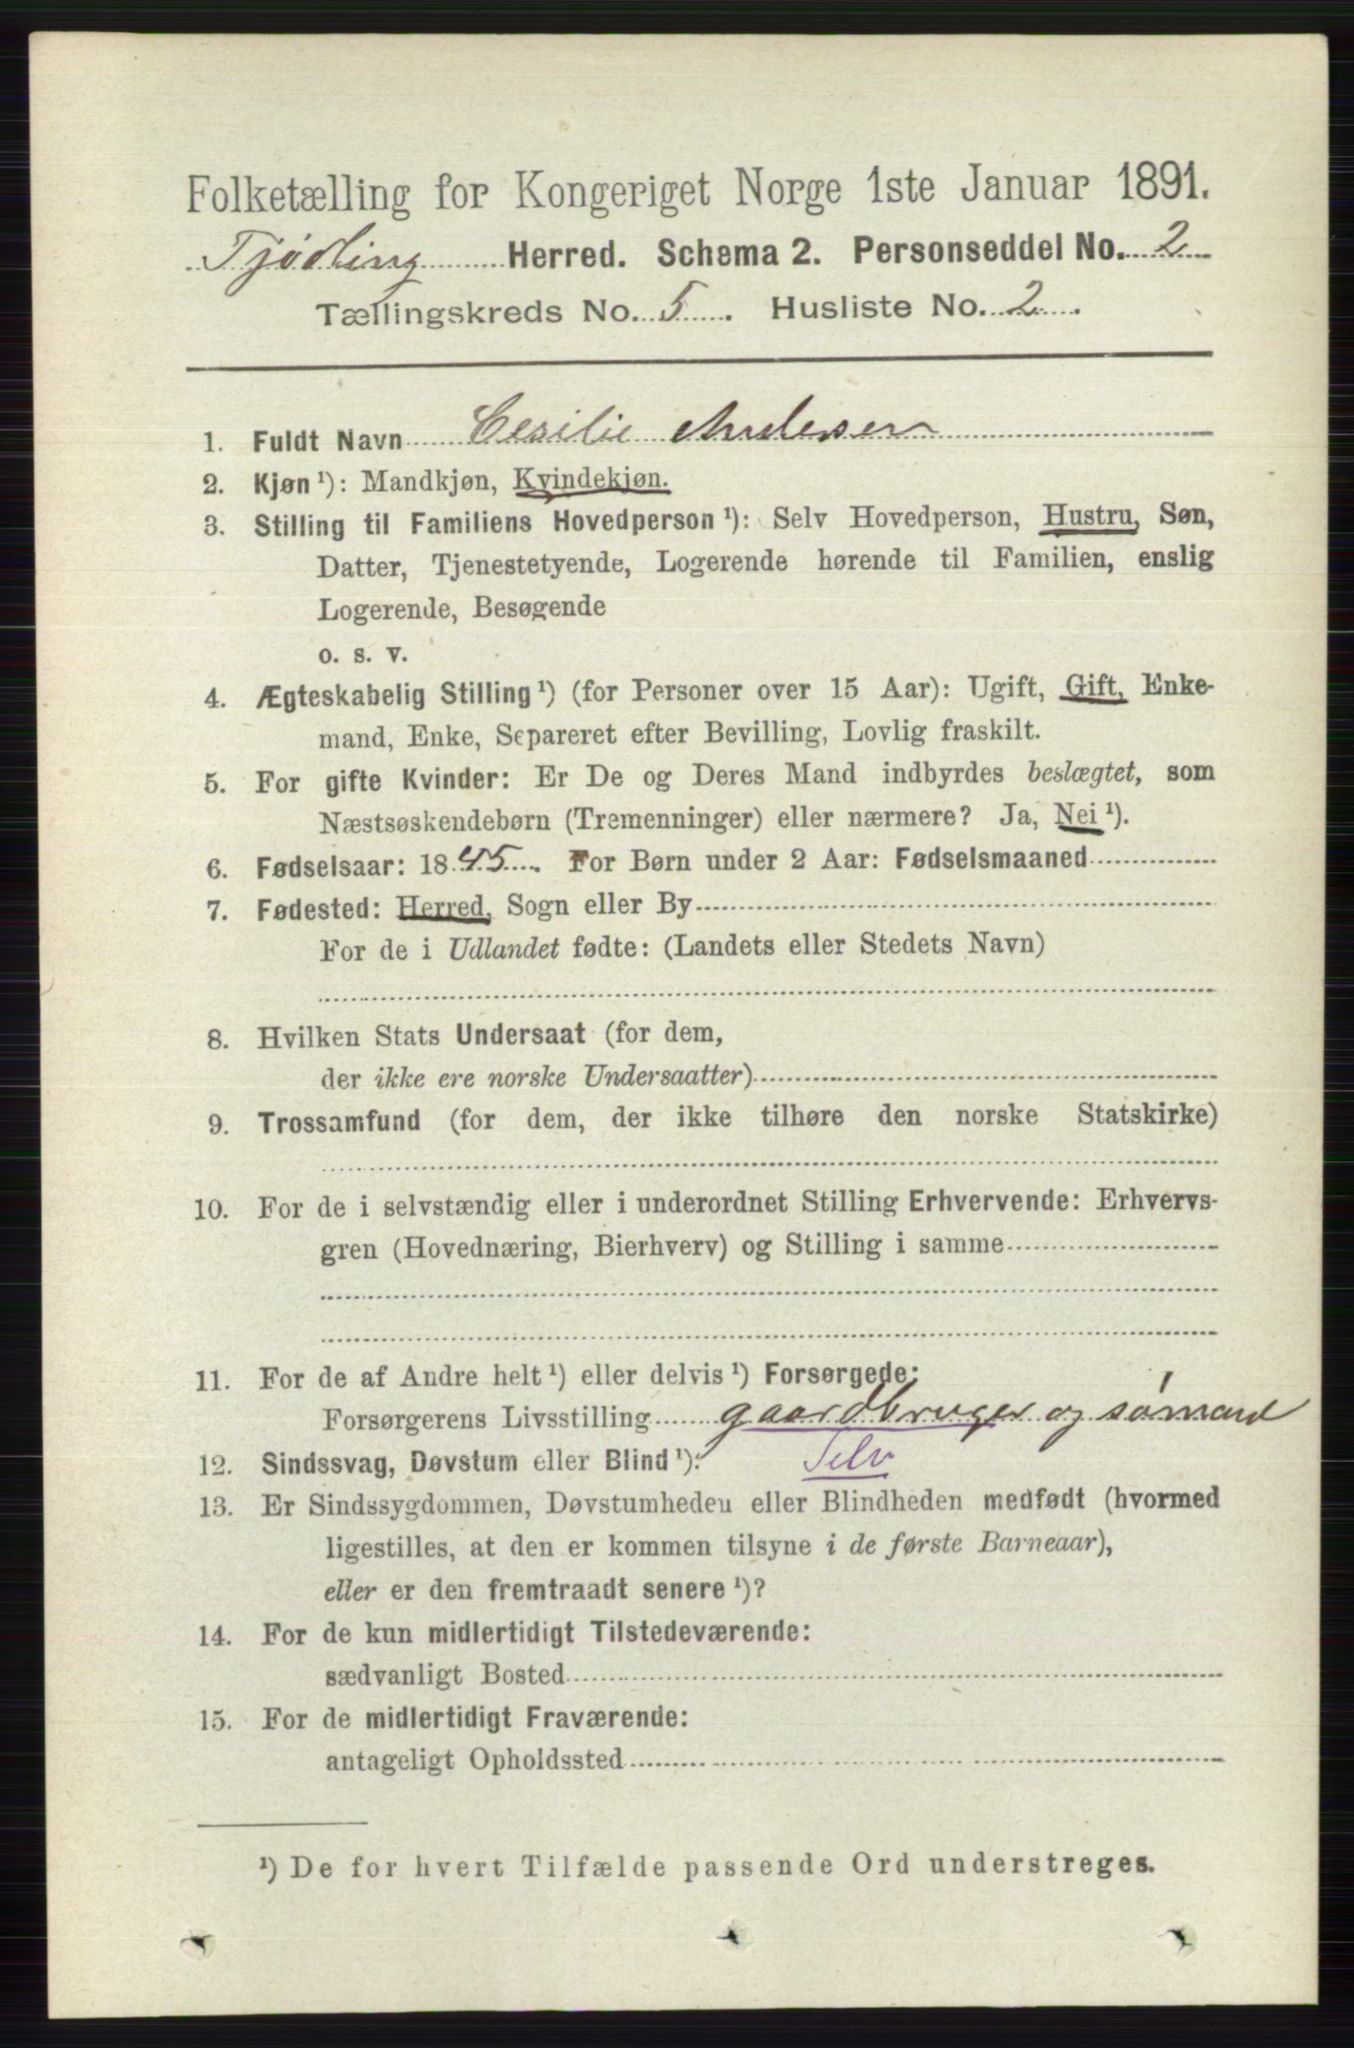 Folketælling for Kongeriget Norge 1ste Januar 1891.
Tjødling Herred. Schema 2. Personseddel No. 2
Tællingskreds No. 5. Husliste No. 2.
1. Fuldt Navn Cesilie Andersen
2. Kjøn ¹): Mandkjøn, Kvindekjøn.
3. Stilling til Familiens Hovedperson ¹): Selv Hovedperson, Hustru, Søn,
Datter, Tjenestetyende, Logerende hørende til Familien, enslig
Logerende, Besøgende
o. s. v.
4. Ægteskabelig Stilling ¹) (for Personer over 15 Aar): Ugift, Gift, Enke-
mand, Enke, Separeret efter Bevilling, Lovlig fraskilt.
5. For gifte Kvinder: Er De og Deres Mand indbyrdes beslægtet, som
Næstsøskendebørn (Tremenninger) eller nærmere? Ja, Nei ¹).
6. Fødselsaar: 1845. For Børn under 2 Aar: Fødselsmaaned
7. Fødested: Herred, Sogn eller By
For de i Udlandet fødte: (Landets eller Stedets Navn)
8. Hvilken Stats Undersaat (for dem,
der ikke ere norske Undersaatter)
9. Trossamfund (for dem, der ikke tilhøre den norske Statskirke)
10. For de i selvstændig eller i underordnet Stilling Erhvervende: Erhvervs-
gren (Hovednæring, Bierhverv) og Stilling i samme
11. For de af Andre helt ¹) eller delvis ¹) Forsørgede:
Forsørgerens Livsstilling gaardbruger og sømand
12. Sindssvag, Døvstum eller Blind ¹): Selv
13. Er Sindssygdommen, Døvstumheden eller Blindheden medfødt (hvormed
ligestilles, at den er kommen tilsyne i de første Barneaar),
eller er den fremtraadt senere ¹)?
14. For de kun midlertidigt Tilstedeværende:
sædvanligt Bosted
15. For de midlertidigt Fraværende:
antageligt Opholdssted
¹) De for hvert Tilfælde passende Ord understreges.